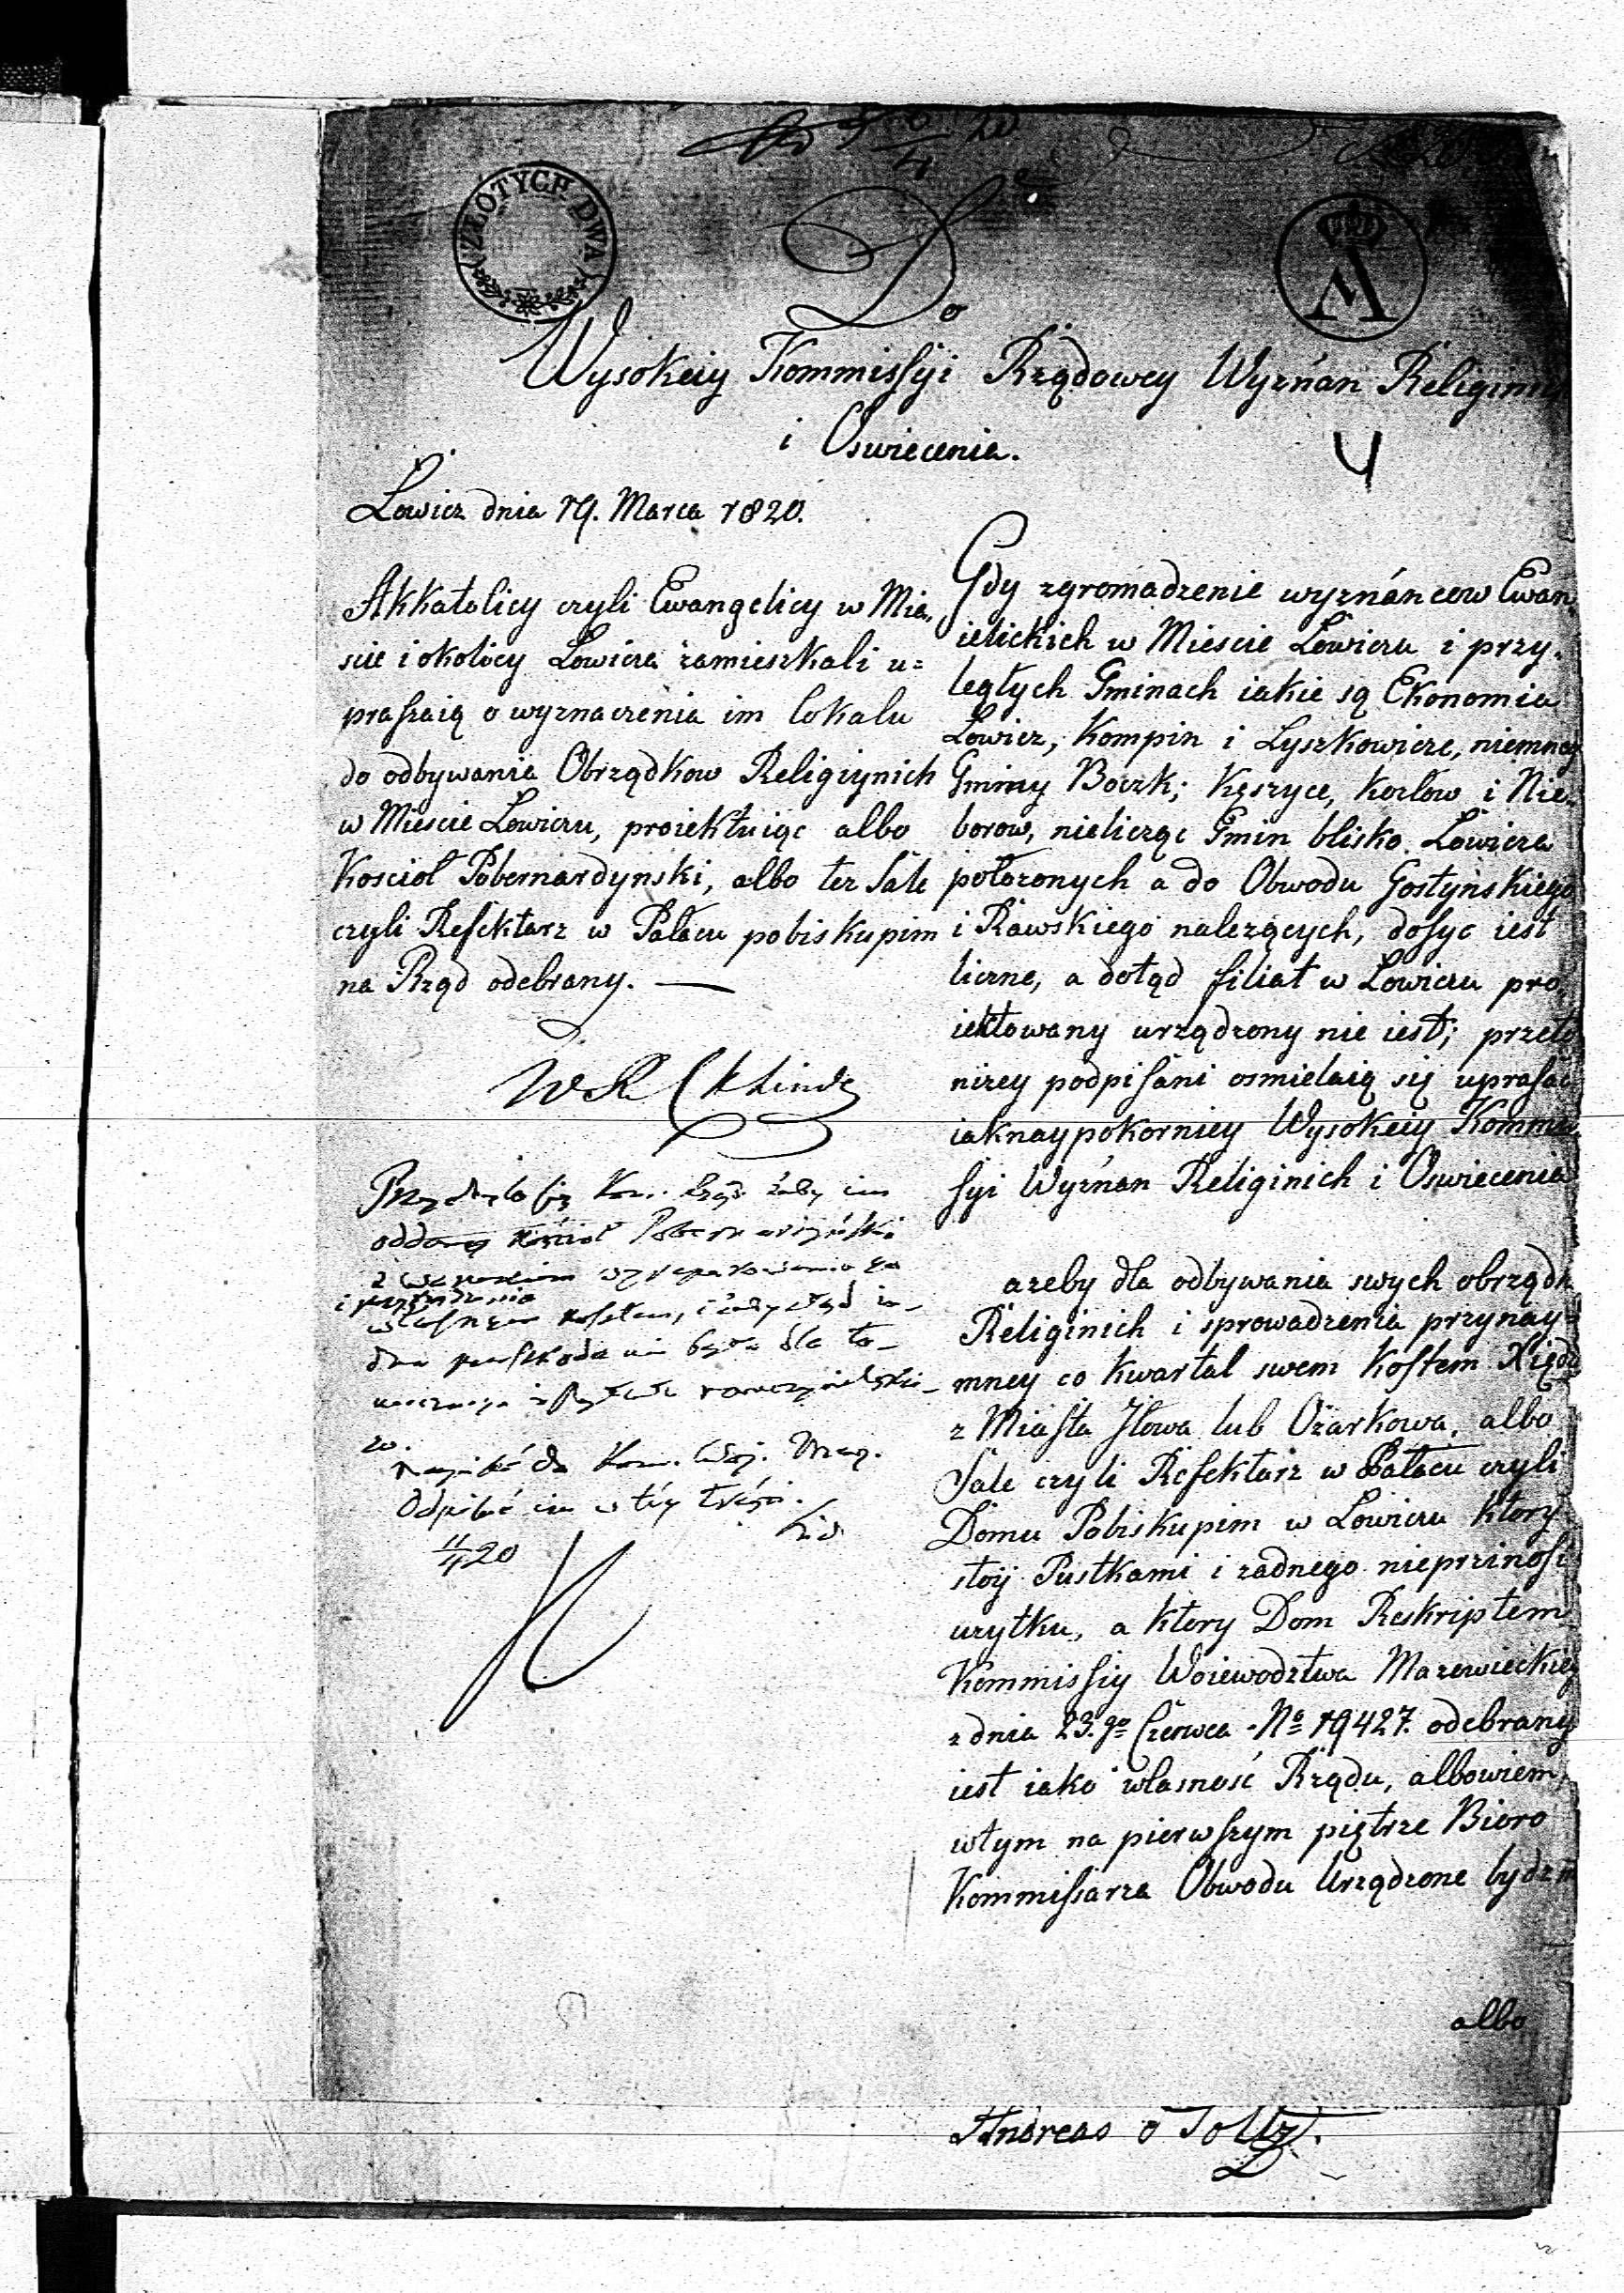 ZŁOTYCH DWA
Do
Wysokiey Kommissyi Rządowey Wyznań Religiiny
i Oswiecenia.
4
Łowicz dnia 19. Marca 1820.
Akkatolicy czyli Ewangelicy w Mie„
scie i okolicy Łowicza zamieszkali u=
praszaią o wyznaczenia im lokalu
do odbywania Obrządkow Religiynich
w Miescie Łowiczu, proiektuiąc albo
Koscioł Pobernardynski, albo tez Sale
czyli Refektarz w Pałacu pobiskupim
na Rząd odebrany. —
Linde
Kom. Rząd. żeby im
oddany kościoł Pobernardyński
z wyreparowania go
własnym kosztem,
dna przeszkoda nie była dla
w.
napisać do Kom. Woj. Maz.
Odpisać im w téy tréści.
11/4 20
Gdy zgromadzenie wyznáncow Ewan„
ielickich w Miescie Łowiczu i przy„
ległych Gminach iakie są Ekonomia
Łowicz, Kompin i Łyszkowice, niemney
Gminy Boczk; Kęszyce, Kozłow i Nie„
borow, nielicząc Gmin blisko Łowicza
położonych a do Obwodu Gostyńskiego
i Rawskiego nalezących, dosyc iest
liczne, a dotąd filiał w Łowiczu pro„
iektowany urządzony nie iest; przeto
nizey podpisani osmielaią się uprasać
iaknaypokorniey Wysokiey Kommi„
ssyi Wyznan Religinich i Oswiecenia
azeby dla odbywania swych obrządk
Religinich i sprowadzenia przynay=
mney co kwartał swem Kosztem Xiędz
z Miasta Iłowa lub Ozarkowa, albo
Sale czyli Refektarz w Pałacu czyli
Domu Pobiskupim w Łowiczu ktory
stoij Pustkami i zadnego nieprzinosi
uzytku, a ktory Dom Reskriptem
Kommissiy Woiewodztwa Mazowieckieg
z dnia 23.go Czerwca No 19427. odebrany
iest iako własność Rządu, albowiem
wtym na pierwszym piętrze Bioro
Kommissarza Obwodu Urządzone bydz m
albo
Andreas